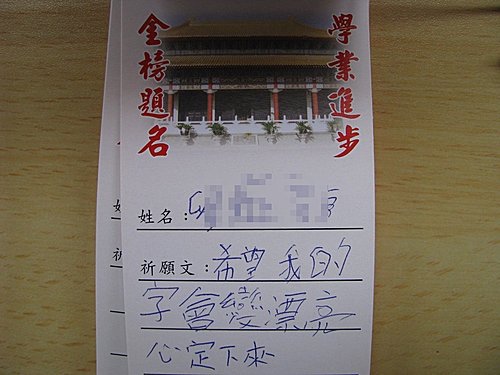 金榜題名
學業進步
姓名：
祈願文：希望我的
字會變漂亮
心定下來